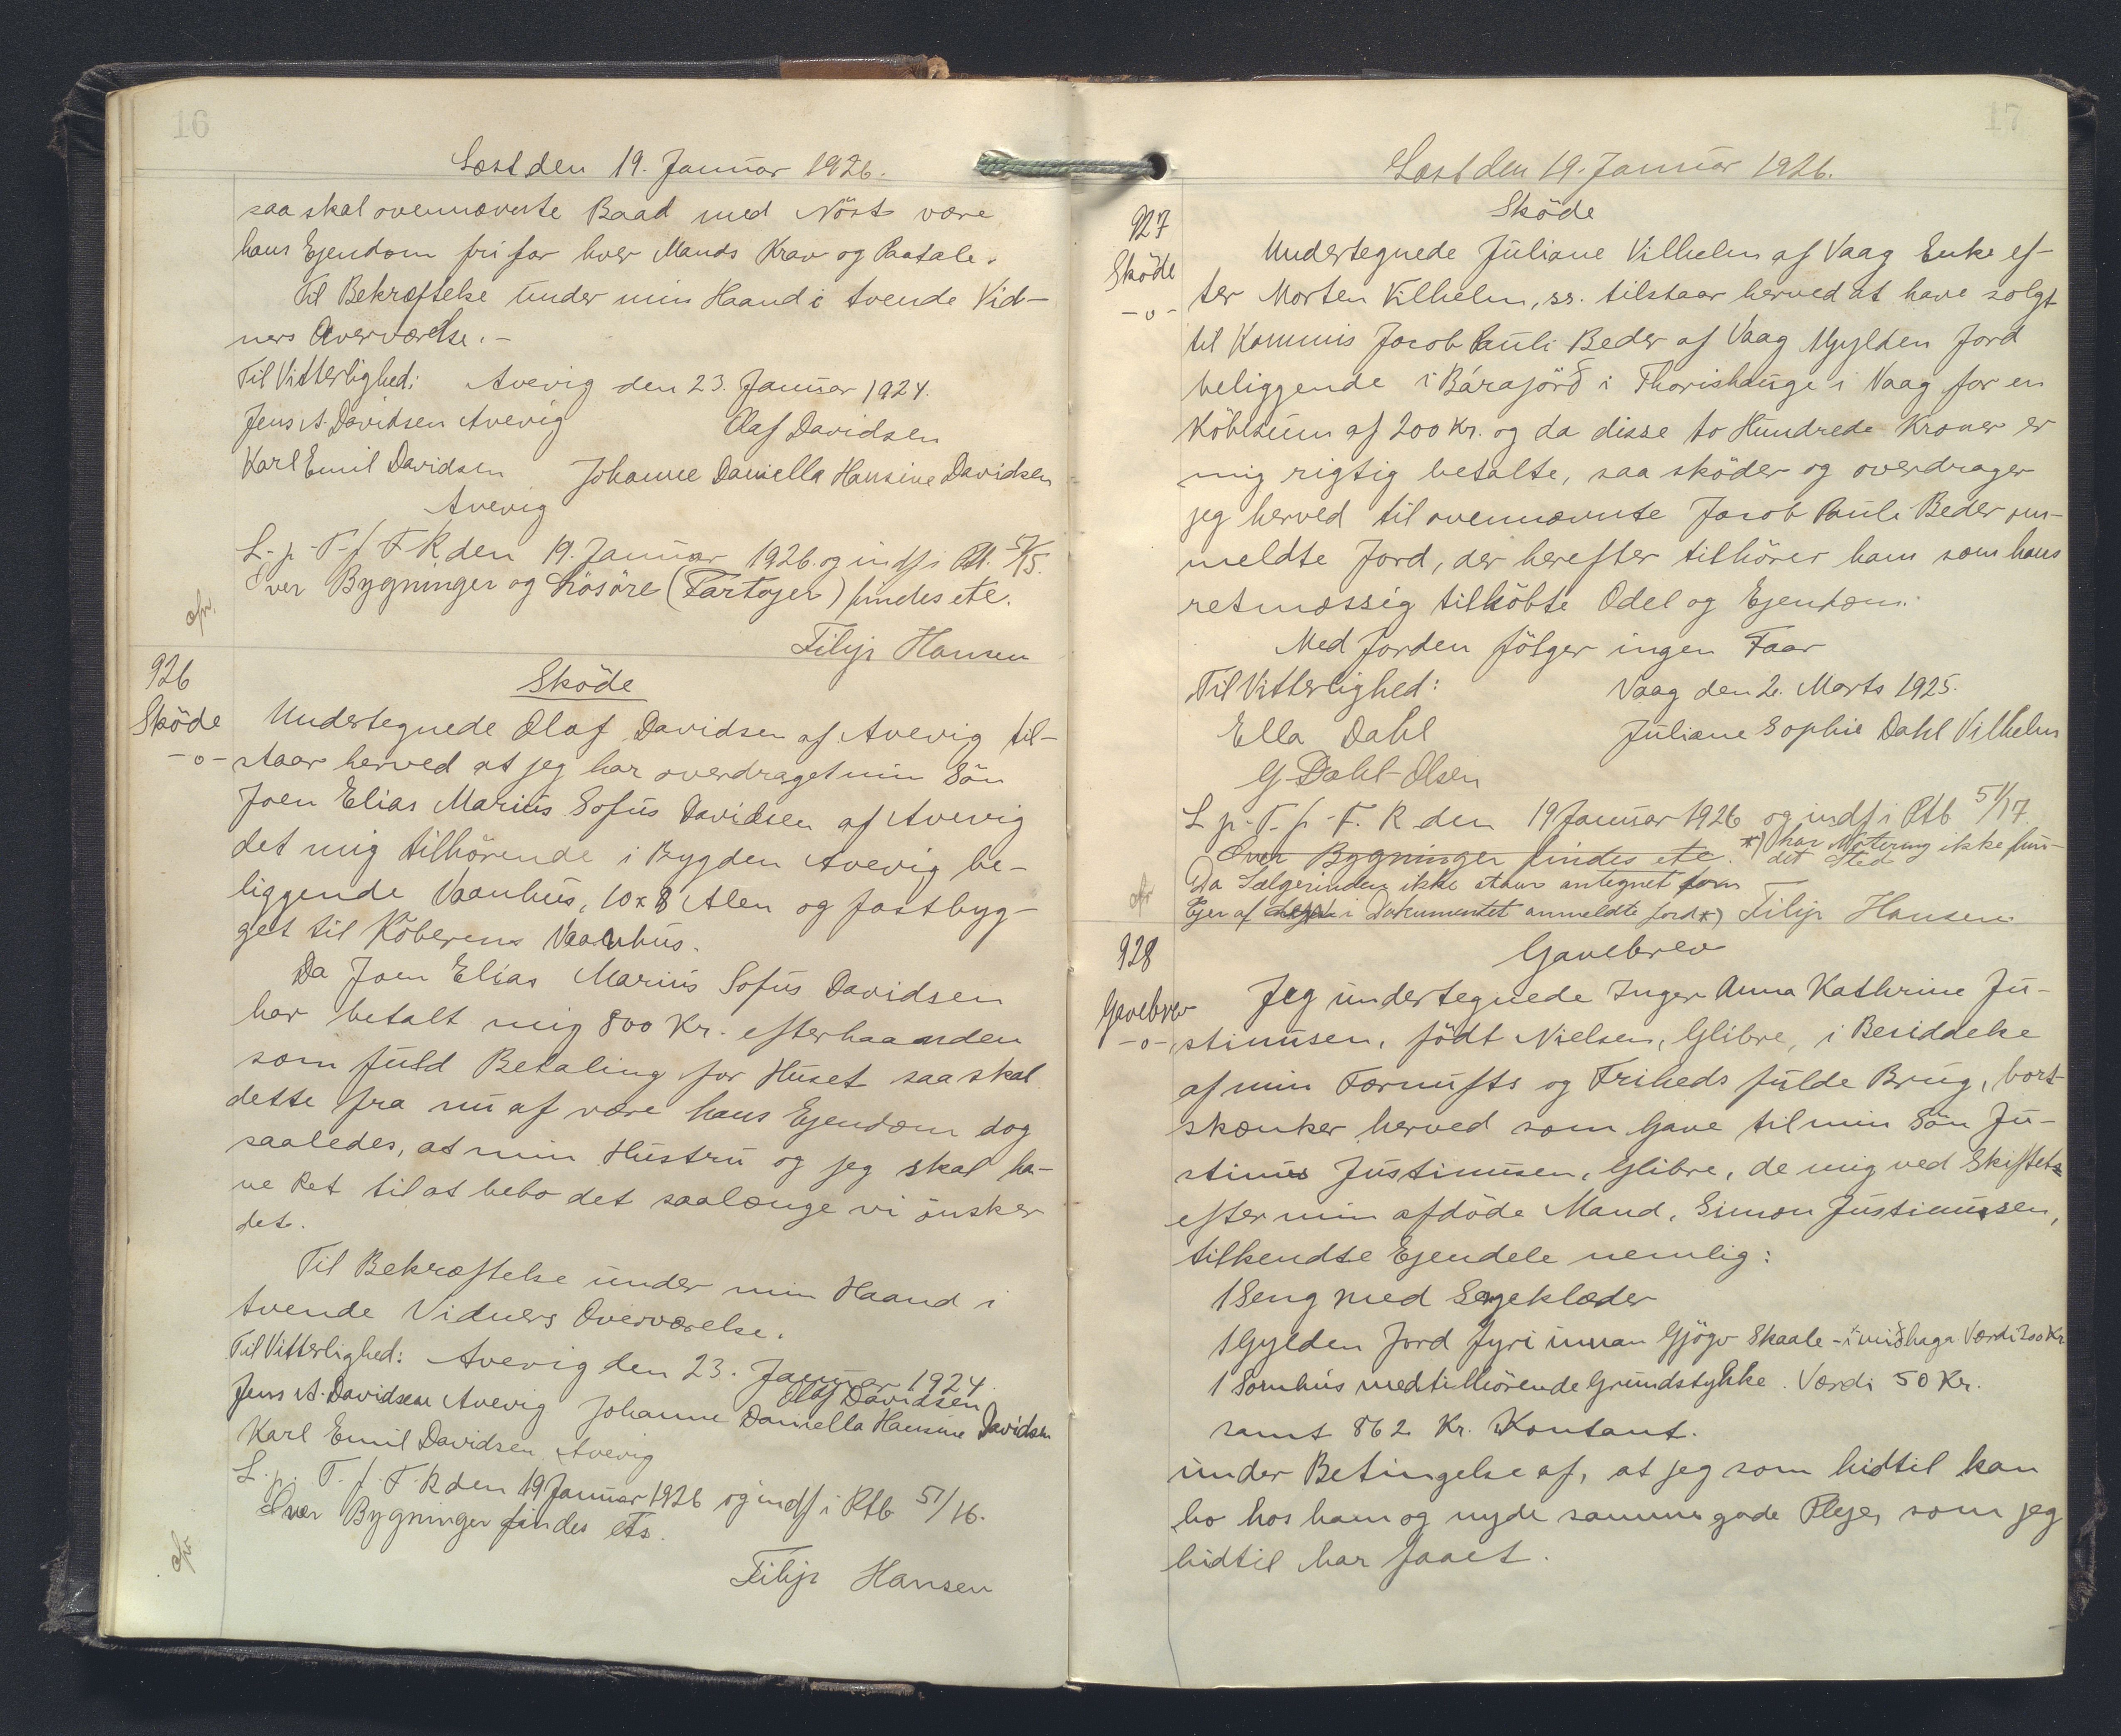 16
Læst den 19. Januar 1926.
saa skal ovennævnte Baad med Nöst være
hans Ejendom fri for hver Mands Krav og Paatale.
Til Bekræftelse under min Haand i tvende Vid-
ners Overværelse.-
Til Vitterlighed: Avevig den 23. Januar 1924.
Jens A. Davidsen Avevig Olaf Davidsen
Karl Emil Davidsen Johanne Daniella Hansine Davidsen
Avevig
L. p. T. f. F. R den 19. Januar 1926. og indf i Rtb. 51/15.
Over Bygninger og Lösöre (Fartøjer) findes etc.
Filip Hansen
926
Sköde
Sköde
-o-
Undertegnede Olaf Davidsen af Avevig til-
staar herved at jeg har overdraget min Sön
Joen Elias Marius Sofus Davidsen af Avevig
det mig tilhörende i Bygden Avevig be-
liggende Vaanhus, 10 x 8 Alen og fastbyg-
get til Köberens Vaanhus.
Da Joen Elias Marius Sofus Davidsen
har betalt mig 800 Kr. efterhaanden
som fuld Betaling for Huset saa skal
dette fra nu af være hans Ejendom dog
saaledes, at min Hustru og jeg skal ha-
ve Ret til at bebo det saalænge vi önsker
det.
Til Bekræftelse under min Haand i
tvende Vidners Overværelse.
Til Vitterlighed: Avevig den 23. Januar 1924.
Olaf Davidsen
Jens A. Davidsen Avevig Johanne Daniella Hansine Davidsen
Karl Emil Davidsen Avevig
L. p. T. f. F. R den 19 Januar 1926 og indf i Rtb 51/16.
Over Bygninger findes etc.
Filip Hansen
17
Læst den 19. Januar 1926.
927
Sköde
Sköde
-o-
Undertegnede Juliane Vilhelm af Vaag Enke ef-
ter Morten Vilhelm, ss. tilstaar herved at have solgt
til Kommis Jacob Pauli Beder af Vaag 1 Gylden Jord
beliggende i Bárajörð i Thorishauge i Vaag for en
Köbesum af 200 Kr. og da disse to Hundrede Kroner er
mig rigtig betalte, saa sköder og overdrager
jeg herved til ovennævnte Jacob Pauli Beder om-
meldte Jord, der herefter tilhörer ham som hans
retmæssig tilköbte Odel og Ejendom.
Med Jorden fölger ingen Faar
Til Vitterlighed: Vaag den 2. Marts 1925.
Ella Dahl Juliane Sophie Dahl Vilhelm
G. Dahl-Olsen
L p. T. f. F. R den 19 Januar 1926 og indf i Rtb 51/17.
Over Bygninger findes etc. *) har Notering ikke fun-
det Sted
Da Sælgerinden ikke staar antegnet som
Ejer af i Dokumentet anmeldte Jord *) Filip Hansen
928
Gavebrev
Gavebrev
-o-
Jeg undertegnede Inger Anna Kathrine Ju-
stinusen, födt Nielsen, Glibre, i Besiddelse
af min Fornufts og Friheds fulde Brug, bort-
skænker herved som Gave til min Sön Ju-
stinus Justinusen, Glibre, de mig ved Skiftet
efter min afdöde Mand, Simon Justinussen,
tilkendte Ejendele nemlig:
1 Seng med Sengeklæder
1 Gylden Jord fyri innan Gjógv Skaale- i miðhaga Værdi 200 Kr
1 Sornhus med tilhörende Grundstykke. Værdi 50 Kr.
samt 862 Kr. Kontant.
under Betingelse af, at jeg som hidtil kan
bo hos ham og nyde samme gode Pleje, som jeg
hidtil har faaet.